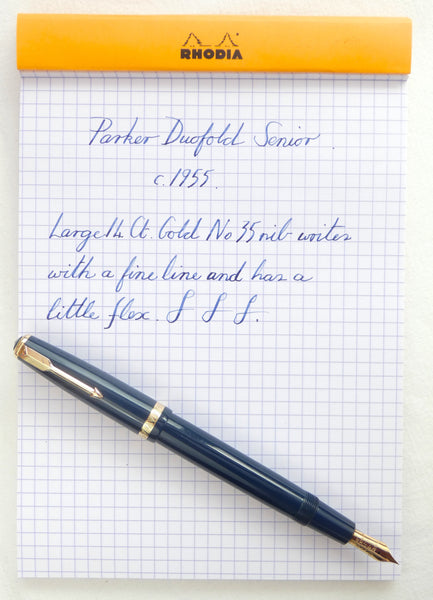 RHODIA
Parker Duofold Senior.
c.1955.
Large 14 Ct. Gold No 35 nib writes
with a fine line and has a
little flex. f f f.